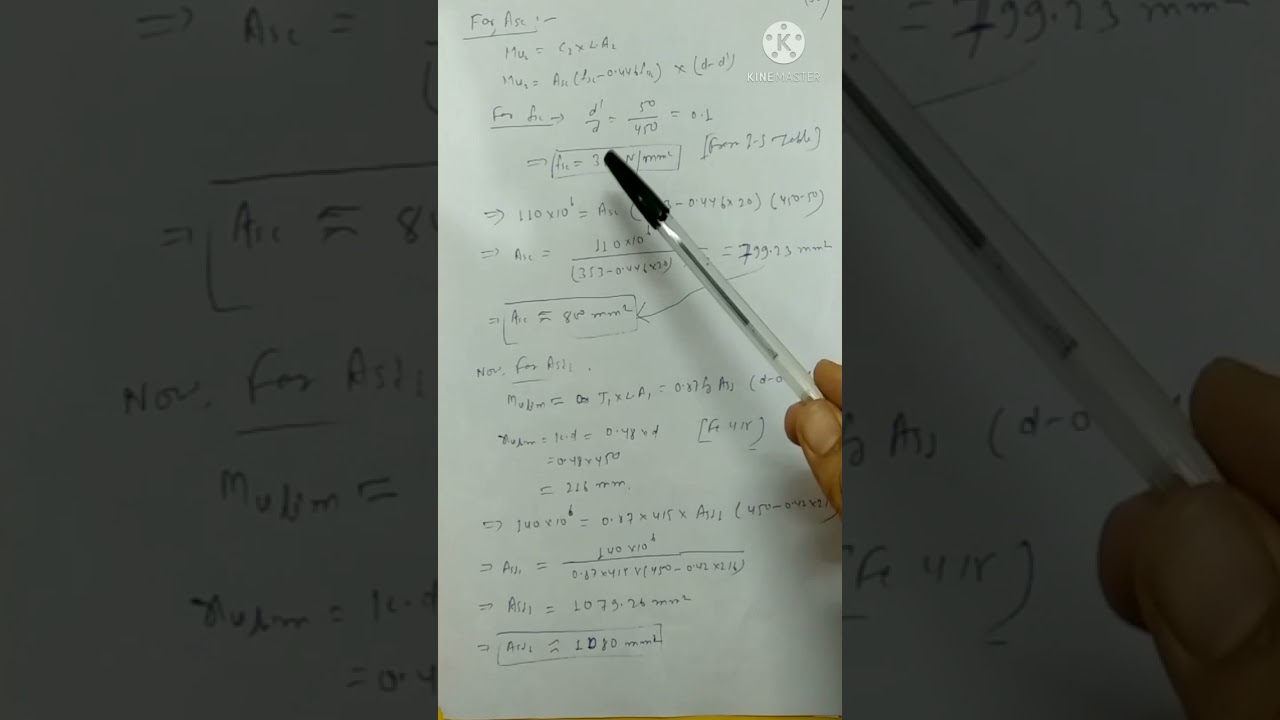 For Asc :-
Mu2 = C2 × LA2
Mu2 = Asc (fsc - 0.446fck) × (d-d')
For fsc → d'/d = 50/450 = 0.1
⇒ fsc = 3 N/mm² [From Table]
⇒ 110×10⁶ = Asc ( 3 - 0.446×20) (450-50)
⇒ Asc = 110×10⁶ / (353-0.446×20) = 799.23 mm²
⇒ Asc ≈ 800 mm²
Now, For Ast1,
Mulim = T1 × LA1 = 0.87fy Ast1 (d-0
xulim = k.d = 0.48×d [Fe 415]
= 0.48×450
= 216 mm.
⇒ 140×10⁶ = 0.87×415× Ast1 (450-0.42×21
⇒ Ast1 = 140×10⁶ / 0.87×415×(450-0.42×216)
⇒ Ast1 = 1079.26 mm²
⇒ Ast1 ≈ 1080 mm²
K
KINEMASTER
⇒ Asc =
= 799.23 mm²
⇒ Asc ≈ 80
Now, For Ast1
Mulim =
Ast (d-0
xulim = k.d
[Fe 415]
= 0.4